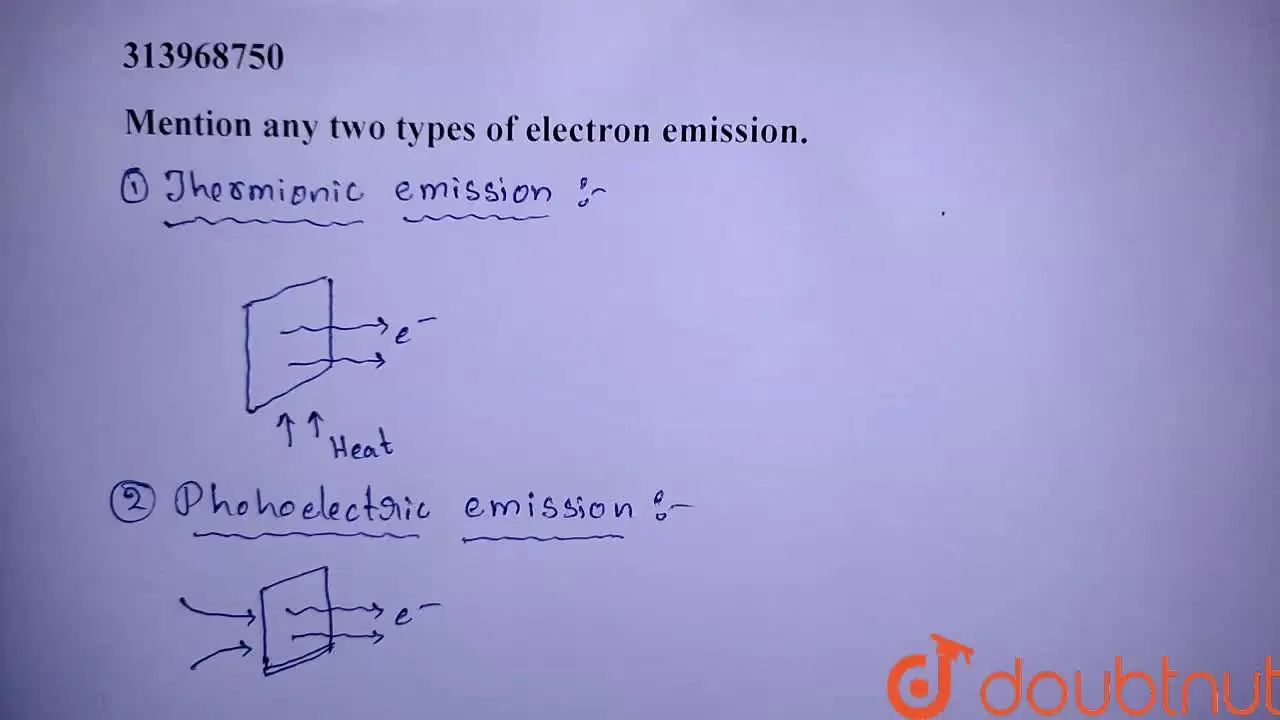 313968750
Mention any two types of electron emission.
① Thermionic emission :-
e⁻
Heat
② Phohoelectric emission :-
e⁻
doubtnut